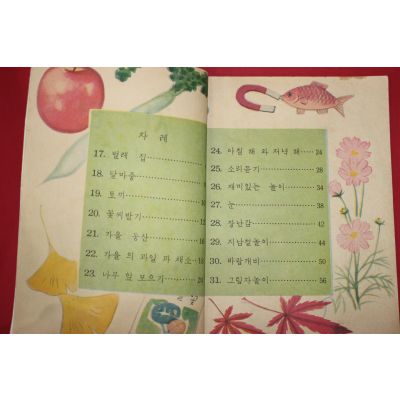 차 례
17. 벌레 집
18. 달마중
19. 토끼
20. 꽃씨받기
21. 가을 동산 16
22. 가을 의 과일 과 채소 18
23. 나무 잎 모으기 21
24. 아침 해 와 저녁 해 24
25. 소리듣기 28
26. 재미있는 놀이 34
27. 눈 38
28. 장난감 42
29. 지남철놀이 44
30. 바람개비 50
31. 그림자놀이 56